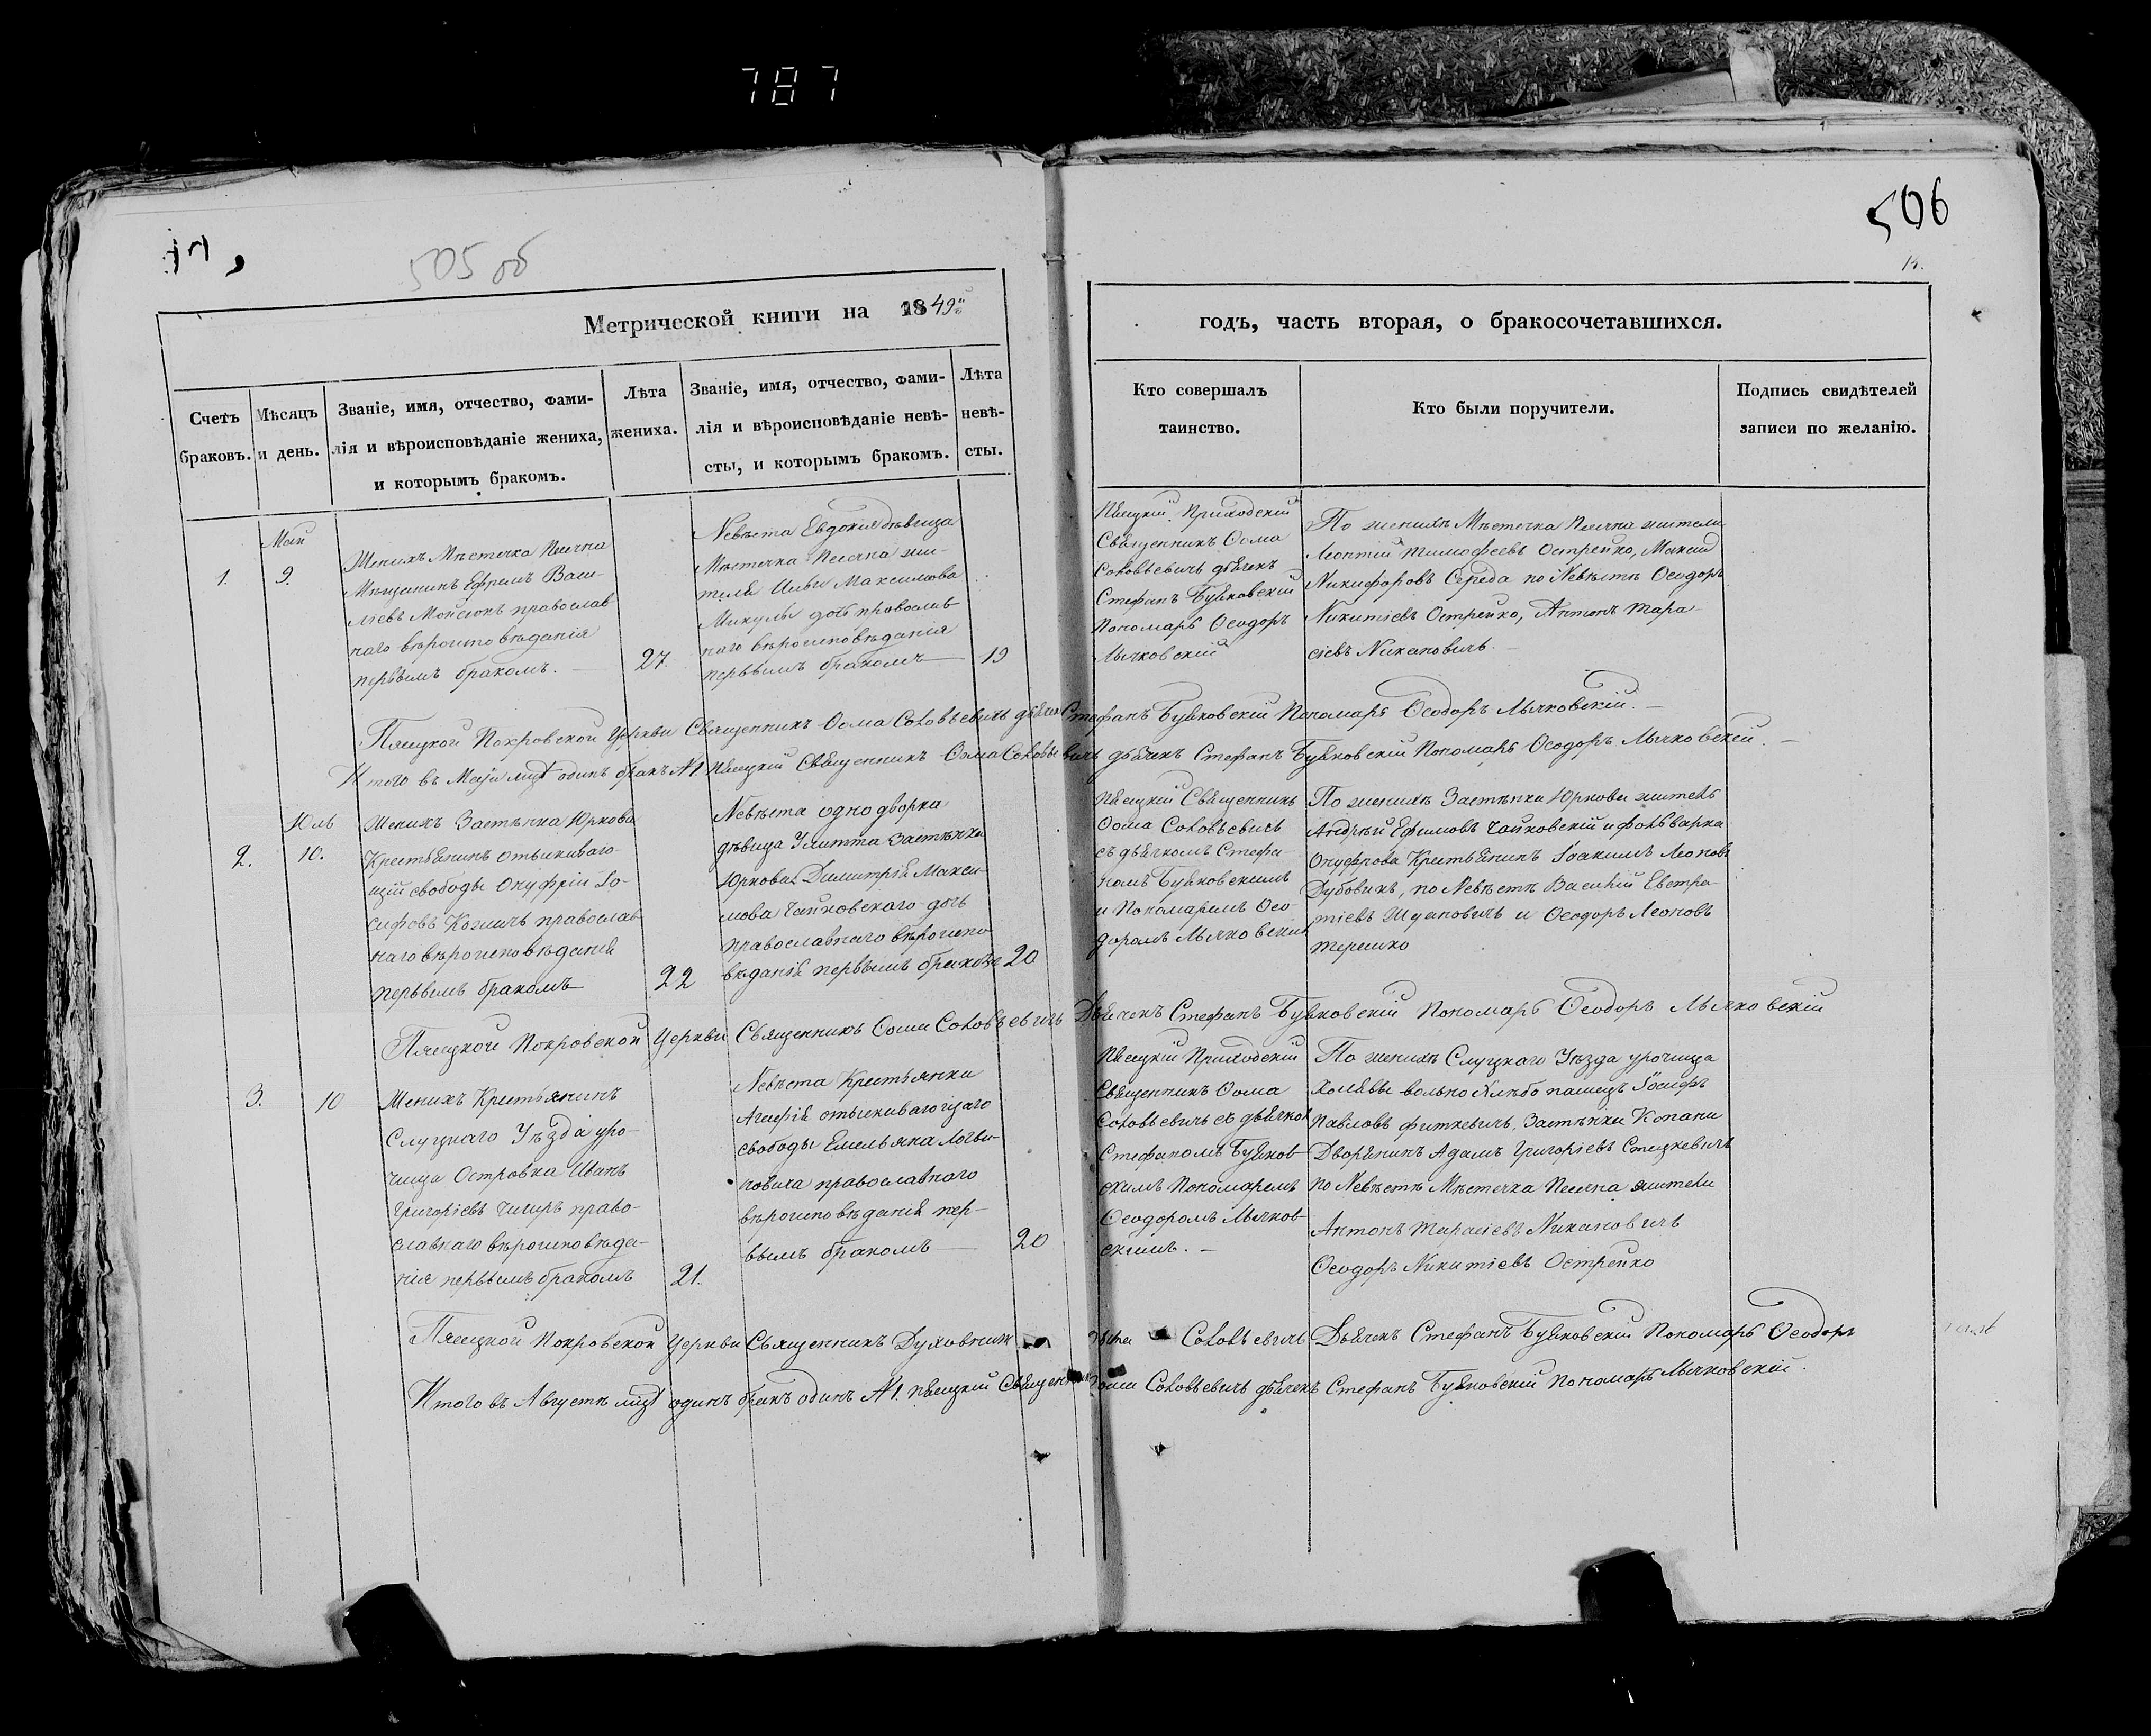 787
505 об
506
14.
Метрической книги на 1849й
годъ, часть вторая, о бракосочетавшихся.
Счетъ браковъ.
Мѣсяцъ и день.
Званіе, имя, отчество, фами-
лія и вѣроисповѣданіе жениха,
и которымъ бракомъ.
Лѣта
жениха.
Званіе, имя, отчество, фами-
лія и вѣроисповѣданіе невѣ-
сты, и которымъ бракомъ.
Лѣта
невѣ-
сты.
Кто совершалъ
таинство.
Кто были поручители.
Подпись свидѣтелей
записи по желанію.
1.
Май
9.
Женихъ Мѣстечка Песечна
Мѣщанинъ Ефремъ Васи-
ліевъ Мойсіокъ православ
наго вѣроисповѣданія
первымъ бракомъ.
27.
Невѣста Евдокія дѣвица
Мѣстечка Песечна жи-
теля Ильи Максимова
Микулы дочь православ
наго вѣроисповѣданія
первымъ бракомъ
19
Приходскій
Священникъ Ѳома
Соловьевичъ дьячекъ
Стефанъ Буяковскій
Пономарь Ѳеодоръ
Лычковскій
По женихѣ Мѣстечка Песечна жители
Леонтій Тимофеевъ Острейко, Максим
Никифоровъ Середа по Невѣстѣ Ѳеодоръ
Никитіевъ Острейко, Антонъ Тара-
сіевъ Никановичъ.
Покровской Церкви Священникъ Ѳома Соловьевичъ дьячекъ Стефанъ Буяковскій Пономарь Ѳеодоръ Лычковскій.
Итого въ Маѣ мцѣ одинъ бракъ №1. Священникъ Ѳома Соловьевичъ дьячекъ Стефанъ Буяковскій Пономарь Ѳеодоръ Лычковскій.
2.
Юль
10.
Женихъ Застѣнка Юркова
Крестьянинъ отыскиваю-
щій свободы Онуфрій Іо-
сифовъ Козличъ православ
наго вѣроисповѣданія
первымъ бракомъ
22
Невѣста однодворка
дѣвица Улитта Застѣнка
Юркова Димитрія Макси-
мова Чайковскаго дочь
православнаго вѣроиспо
вѣданія первымъ бракомъ
20
Священникъ
Ѳома Соловьевичъ
съ дьячкомъ Стефа-
номъ Буяковскимъ
и Пономаремъ Ѳео-
доромъ Лычковским
По женихѣ Застѣнка Юркова житель
Андрей Ефимовъ Чайковскій и фольварка
Онуфрова Крестьянинъ Іоакимъ Леоновъ
Дубовикъ, по Невѣстѣ Василій Евстра-
тіевъ и Ѳеодоръ Леоновъ
Терешко
Покровской Церкви Священникъ Ѳома Соловьевичъ Дьячекъ Стефанъ Буяковскій Пономарь Ѳеодоръ Лычковскій
3.
10
Женихъ Крестьянинъ
Слуцкаго Уѣзда уро-
чища Островка Иванъ
Григоріевъ Чигиръ право-
славнаго вѣроисповѣда-
нія первымъ бракомъ
21.
Невѣста Крестьянка
Агафія отыскивающаго
свободы Емельяна
православнаго
вѣроисповѣданія пер-
вымъ бракомъ
20
Приходскій
Священникъ Ѳома
Соловьевичъ съ дьячком
Стефаномъ Буяков
скимъ Пономаремъ
Ѳеодоромъ Лычков
скимъ.
По женихѣ Слуцкаго Уѣзда урочища
вольно Хлѣбопашецъ Іосифъ
Павловъ Фиткевичъ, Застѣнка Копани
Дворянинъ Адамъ Григоріевъ Стецкевичъ
по Невѣстѣ Мѣстечка Песечна жители
Антонъ Тарасіевъ Никановичъ
Ѳеодоръ Никитіевъ Острейко
Покровской Церкви Священникъ Духовникъ Ѳома Соловьевичъ Дьячекъ Стефанъ Буяковскій Пономарь Ѳеодоръ
Итого въ Августѣ мцѣ одинъ бракъ одинъ №1. Священникъ Ѳома Соловьевичъ дьячекъ Стефанъ Буяковскій Пономарь Лычковскій.